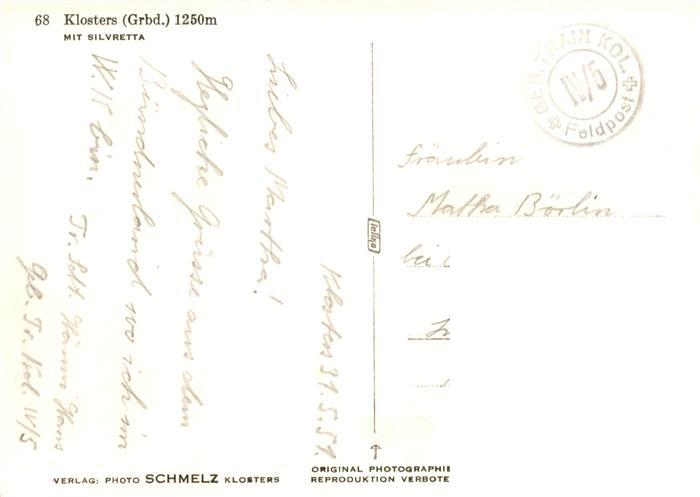 68 Klosters (Grbd.) 1250m
MIT SILVRETTA
GEB. TRAIN KOL.
IV/5
Feldpost
Klosters 31.5.51.
Liebes Martha!
Herzliche Grüsse aus dem
Bündnerland wo ich im
W.K bin.
Tr. Sdt. Hans
Geb. Tr. Kol. IV/5
Fräulein
Martha Börlin
bei
VERLAG: PHOTO SCHMELZ KLOSTERS
ORIGINAL PHOTOGRAPHIE
REPRODUKTION VERBOTE